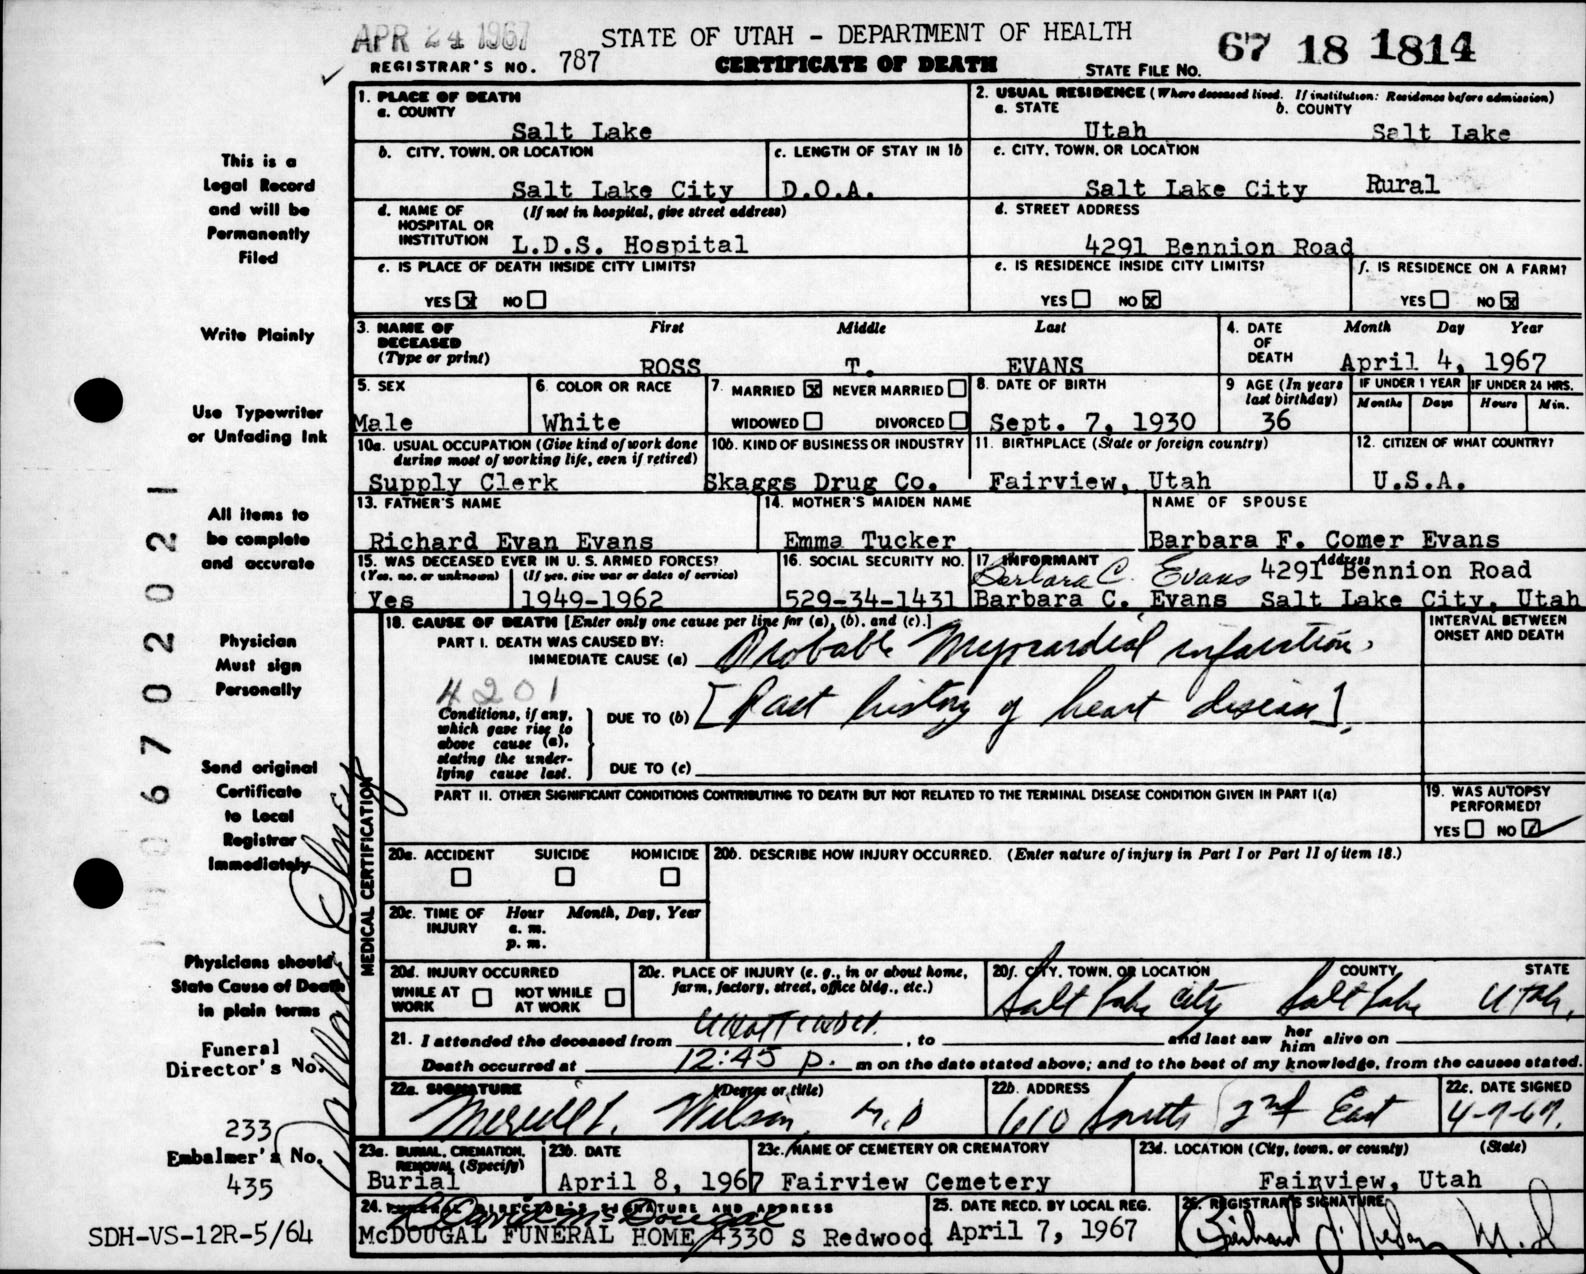 APR 24 1967
STATE OF UTAH - DEPARTMENT OF HEALTH
67 18 1814
REGISTRAR'S NO. 787
CERTIFICATE OF DEATH
STATE FILE NO.
1. PLACE OF DEATH
a. COUNTY
Salt Lake
2. USUAL RESIDENCE (Where deceased lived. If institution: Residence before admission)
a. STATE b. COUNTY
Utah Salt Lake
b. CITY, TOWN, OR LOCATION
Salt Lake City
c. LENGTH OF STAY IN 1b
D.O.A.
c. CITY, TOWN, OR LOCATION
Salt Lake City Rural
d. NAME OF HOSPITAL OR INSTITUTION (If not in hospital, give street address)
L.D.S. Hospital
d. STREET ADDRESS
4291 Bennion Road
e. IS PLACE OF DEATH INSIDE CITY LIMITS?
YES x NO
e. IS RESIDENCE INSIDE CITY LIMITS?
YES NO x
f. IS RESIDENCE ON A FARM?
YES NO x
3. NAME OF DECEASED (Type or print)
First Middle Last
ROSS T. EVANS
4. DATE OF DEATH
Month Day Year
April 4, 1967
5. SEX
Male
6. COLOR OR RACE
White
7. MARRIED x NEVER MARRIED
WIDOWED DIVORCED
8. DATE OF BIRTH
Sept. 7, 1930
9 AGE (In years last birthday)
36
IF UNDER 1 YEAR
Months Days
IF UNDER 24 HRS.
Hours Min.
10a. USUAL OCCUPATION (Give kind of work done during most of working life, even if retired)
Supply Clerk
10b. KIND OF BUSINESS OR INDUSTRY
Skaggs Drug Co.
11. BIRTHPLACE (State or foreign country)
Fairview, Utah
12. CITIZEN OF WHAT COUNTRY?
U.S.A.
13. FATHER'S NAME
Richard Evan Evans
14. MOTHER'S MAIDEN NAME
Emma Tucker
NAME OF SPOUSE
Barbara F. Comer Evans
15. WAS DECEASED EVER IN U. S. ARMED FORCES?
(Yes, no, or unknown) (If yes, give war or dates of service)
Yes 1949-1962
16. SOCIAL SECURITY NO.
529-34-1431
17. INFORMANT Address
Barbara C. Evans 4291 Bennion Road
Barbara C. Evans Salt Lake City, Utah
18. CAUSE OF DEATH [Enter only one cause per line for (a), (b), and (c).]
INTERVAL BETWEEN ONSET AND DEATH
PART I. DEATH WAS CAUSED BY:
IMMEDIATE CAUSE (a) Probable Myocardial infarction.
4201
Conditions, if any, which gave rise to above cause (a), stating the underlying cause last.
DUE TO (b) [Past history of heart disease].
DUE TO (c)
PART II. OTHER SIGNIFICANT CONDITIONS CONTRIBUTING TO DEATH BUT NOT RELATED TO THE TERMINAL DISEASE CONDITION GIVEN IN PART I(a)
19. WAS AUTOPSY PERFORMED?
YES NO ✓
MEDICAL CERTIFICATION
20a. ACCIDENT SUICIDE HOMICIDE
20b. DESCRIBE HOW INJURY OCCURRED. (Enter nature of injury in Part I or Part II of item 18.)
20c. TIME OF INJURY Hour Month, Day, Year
a. m.
p. m.
20d. INJURY OCCURRED
WHILE AT WORK NOT WHILE AT WORK
20e. PLACE OF INJURY (e. g., in or about home, farm, factory, street, office bldg., etc.)
20f. CITY, TOWN, OR LOCATION COUNTY STATE
Salt Lake City Salt Lake Utah.
21. I attended the deceased from unattended. , to and last saw her him alive on
Death occurred at 12:45 p. m on the date stated above; and to the best of my knowledge, from the causes stated.
22a. SIGNATURE (Degree or title)
Merrill L. Wilson, M.D
22b. ADDRESS
610 South 2nd East
22c. DATE SIGNED
4-7-67.
23a. BURIAL, CREMATION, REMOVAL (Specify)
Burial
23b. DATE
April 8, 1967
23c. NAME OF CEMETERY OR CREMATORY
Fairview Cemetery
23d. LOCATION (City, town, or county) (State)
Fairview, Utah
24. FUNERAL DIRECTOR'S SIGNATURE AND ADDRESS
David McDougal
McDOUGAL FUNERAL HOME 4330 S Redwood
25. DATE RECD. BY LOCAL REG.
April 7, 1967
26. REGISTRAR'S SIGNATURE
M.D
This is a
Legal Record
and will be
Permanently
Filed
Write Plainly
Use Typewriter
or Unfading Ink
All items to
be complete
and accurate
Physician
Must sign
Personally
Send original
Certificate
to Local
Registrar
Immediately
Physicians should
State Cause of Death
in plain terms
Funeral
Director's No.
233
Embalmer's No.
435
SDH-VS-12R-5/64
0670202 1